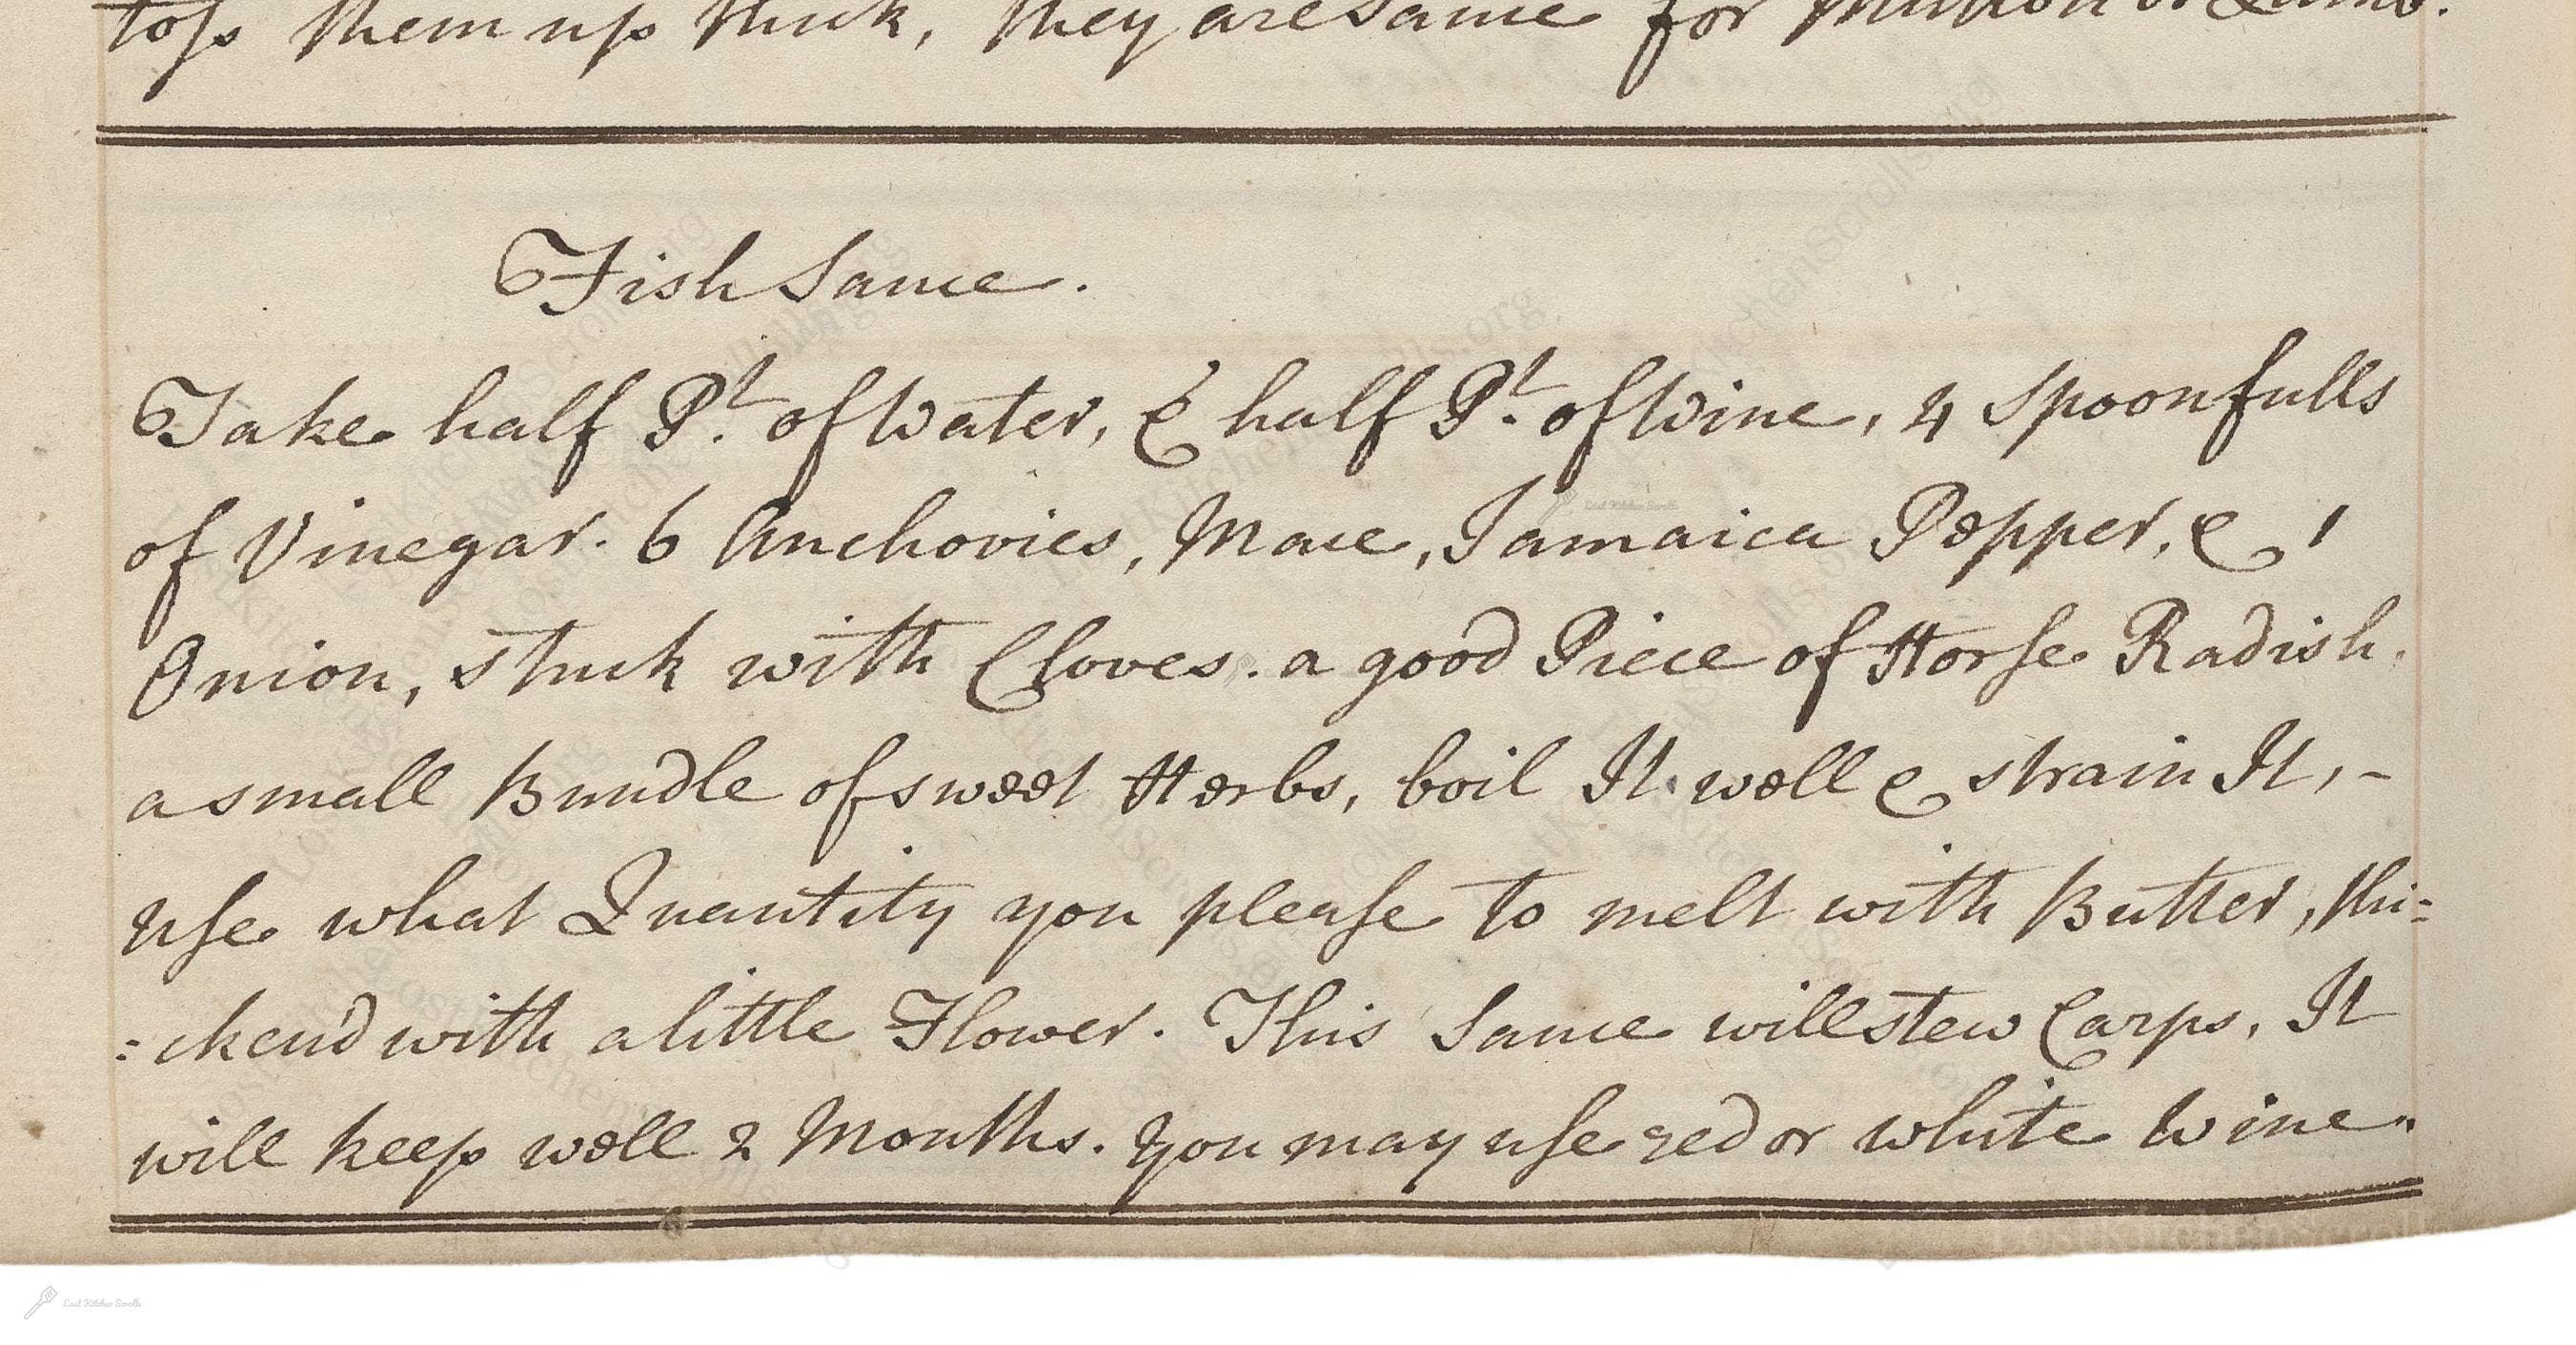 toss them up thick, they are same for Mutton or Lamb.
Fish Sauce.
Take half Pt. of Water, & half Pt. of Wine, 4 Spoonfulls
of Vinegar. 6 Anchovies, Mace, Jamaica Pepper, & 1
Onion, stuck with Cloves. a good Piece of Horse Radish,
a small Bundle of sweet Herbs, boil It well & strain It, -
use what Quantity you please to melt with Butter, thi=
=ckend with a little Flower. This Sauce will stew Carps, It
will keep well 2 Months. You may use red or white Wine.
Lost Kitchen Scrolls